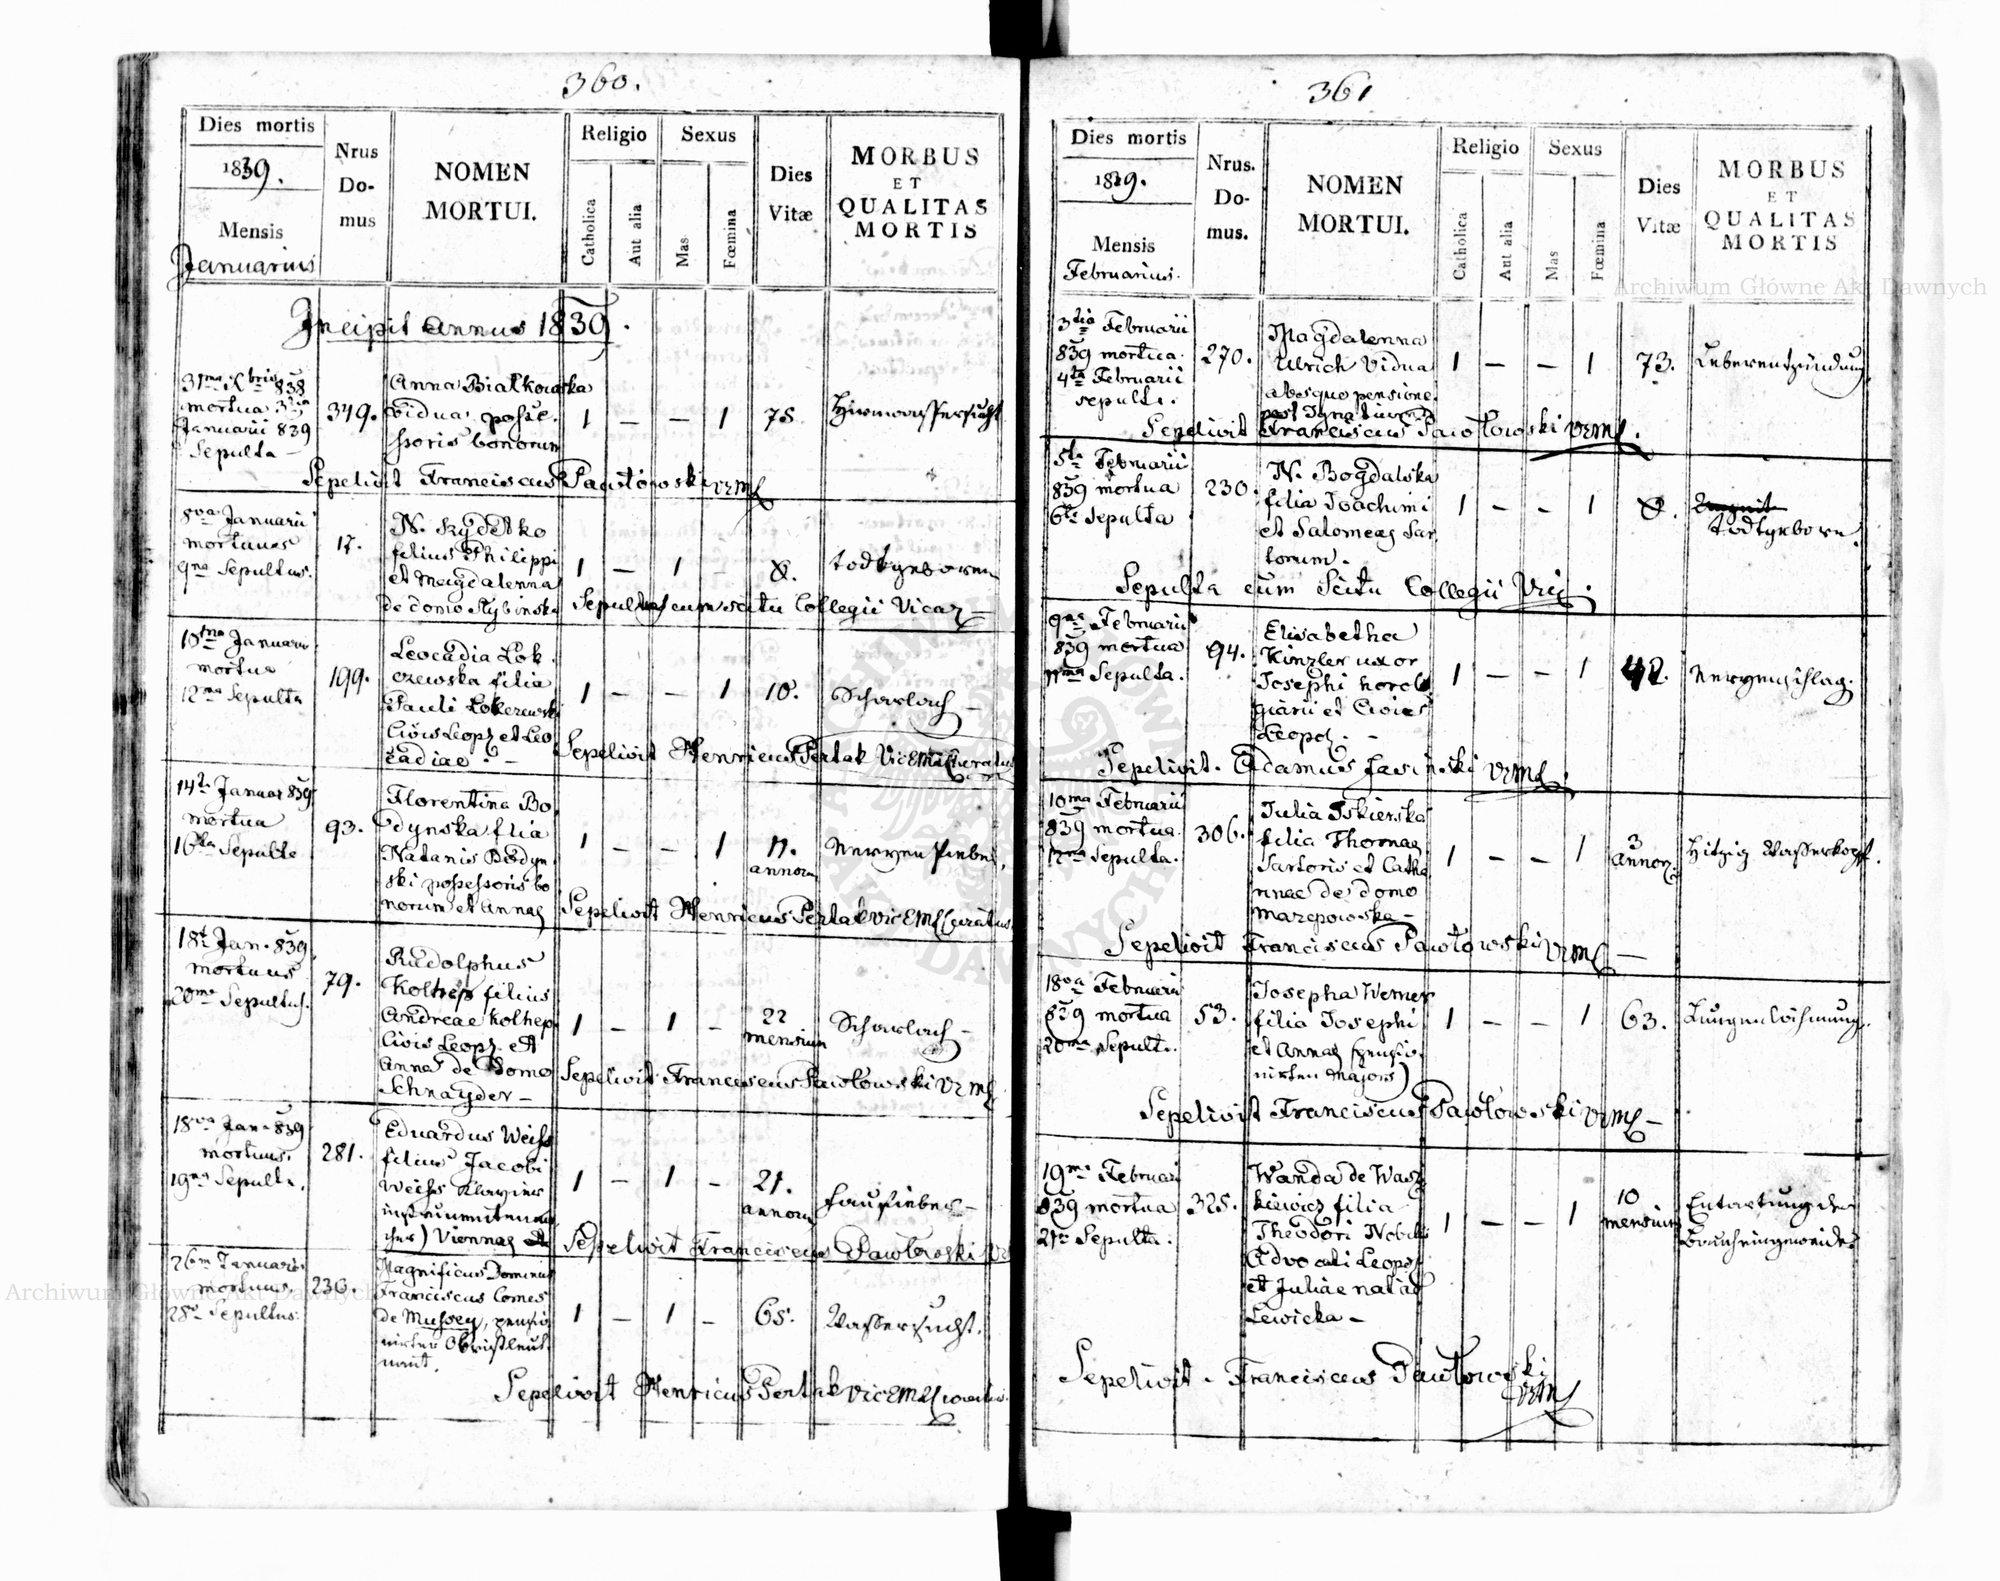 360.
Dies mortis
1839.
Mensis
Januarius
Nrus
Do-
mus
NOMEN
MORTUI.
Religio
Catholica
Aut alia
Sexus
Mas
Fœmina
Dies
Vitæ
MORBUS
ET
QUALITAS
MORTIS
Incipit Annus 1839.
31ma Xbris 838
mortua
Januarii 839
Sepulta
349.
Anna Białkowska
vidua posse-
ssoris bonorum
1 — — 1
75
Sepelivit Franciscus Pawłowski VEML
8va Januarii
mortuus
9na Sepultus.
17.
filius Philippi
et Magdalenna
de domo
1 — 1 —
todtgeboren
Sepultus cum scitu Collegii Vicar —
10ma Januarii
mortua
12ma Sepulta
199.
Leocadia Łok-
czewska filia
Pauli Łokczewski
Civis Leopol et Leo
cadiae. —
1 — — 1
10.
Scharlach —
Sepelivit Henricus Pertak VicEML Curatus
14ta Januar 839
mortua
16ta Sepulta
93.
Florentina Bo
dynska filia
Natanis Bodyn
ski possessoris bo
norum et Annae
1 — — 1
11.
annorum
Nerven Fieber.
Sepelivit Henricus Pertak VicEML Curatus
18t Jan. 839
mortuus
20ma Sepultus.
79.
Rudolphus
Koltrep filius
Andreae Kolhep
Civis Leopol. et
Anna de domo
Schnayder —
1 — 1 —
22
mensium
Scharlach —
Sepelivit Franciscus Pawłowski VEML
18va Jan. 839
mortuus.
19na Sepult.
281.
Eduardus Weiss
filius Jacobi
Weiss Klavier
instrumentenma
cher) Viennae et
1 — 1 —
21.
annorum
Faulfieber —
Sepelivit Franciscus Pawłowski
26ta Januarii
mortuus
28a Sepultus.
230.
Magnificus Dominus
Franciscus Comes
de Mussey, pensio
nirter Obristleut
nant.
1 — 1 —
65.
Wassersucht.
Sepelivit Henricus Pertak VICEML
361
Dies mortis
1839.
Mensis
Februarius.
Nrus.
Do-
mus.
NOMEN
MORTUI.
Religio
Catholica
Aut alia
Sexus
Mas
Fœmina
Dies
Vitæ
MORBUS
ET
QUALITAS
MORTIS
3tia Februarii
839 mortua.
4ta Februarii
sepulta.
270.
Magdalenna
Ulrich Vidua
absque pensione
1 — — 1
73.
Leberentzündung
Sepelivit Franciscus Pawłowski VEML.
5ta Februarii
839 mortua
6ta Sepulta
230.
N. Bogdalska
filia Joachimi
et Salomeae Sar
torum.
1 — — 1
todtgeboren.
Sepulta cum Scitu Collegii Vic.
9na Februarii
839 mortua
11ma Sepulta.
94.
Elisabetha
Kinzler uxor
Josephi horolo
giarii et Civis
Leopol. —
1 — — 1
42.
Nervenschlag.
Sepelivit. Adamus Jasinski VEML
10ma Februarii
839 mortua.
12ma Sepulta.
306.
Julia Iskierska
filia Thomae
Sartoris et Catha
rinae de domo
Marcpowska —
1 — — 1
3
annor.
Hitzig Wasserkopf.
Sepelivit Franciscus Pawłowski VEML —
18va Februarii
839 mortua
20ma Sepult.
53.
Josepha Werner
filia Josephi
et Annae (pensio
nirten Majors)
1 — — 1
63.
Lungenlähmung.
Sepelivit Franciscus Pawłowski VEML —
19na Februari
839 mortua
21ma Sepulta.
325.
Wanda de Wasz
kiewicz filia
Theodori Nobilis
Advocati Leopol
et Juliae natae
Lewicka —
1 — — 1
10
mensium
Entartung der
Baucheingeweide
Sepelivit. Franciscus Pawłowski
VEML
Archiwum Główne Akt Dawnych
Archiwum Główne Akt Dawnych
ARCHIWUM GŁÓWNE AKT DAWNYCH